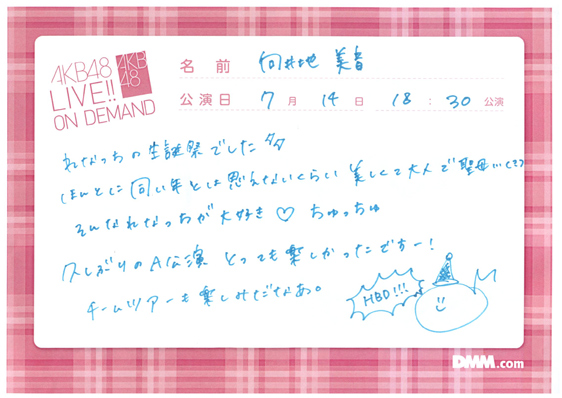 AKB48
LIVE!!
ON DEMAND
AKB
48
名前 向井地 美音
公演日 7月14日 18:30公演
れなっちの生誕祭でした
ほんとに同い年とは思えないくらい美しくて大人で聖母…(?)
そんなれなっちが大好き♡ ちゅっちゅ
久しぶりのA公演 とっても楽しかったですー!
チームツアーも楽しみだなあ。
HBD!!!
DMM.com